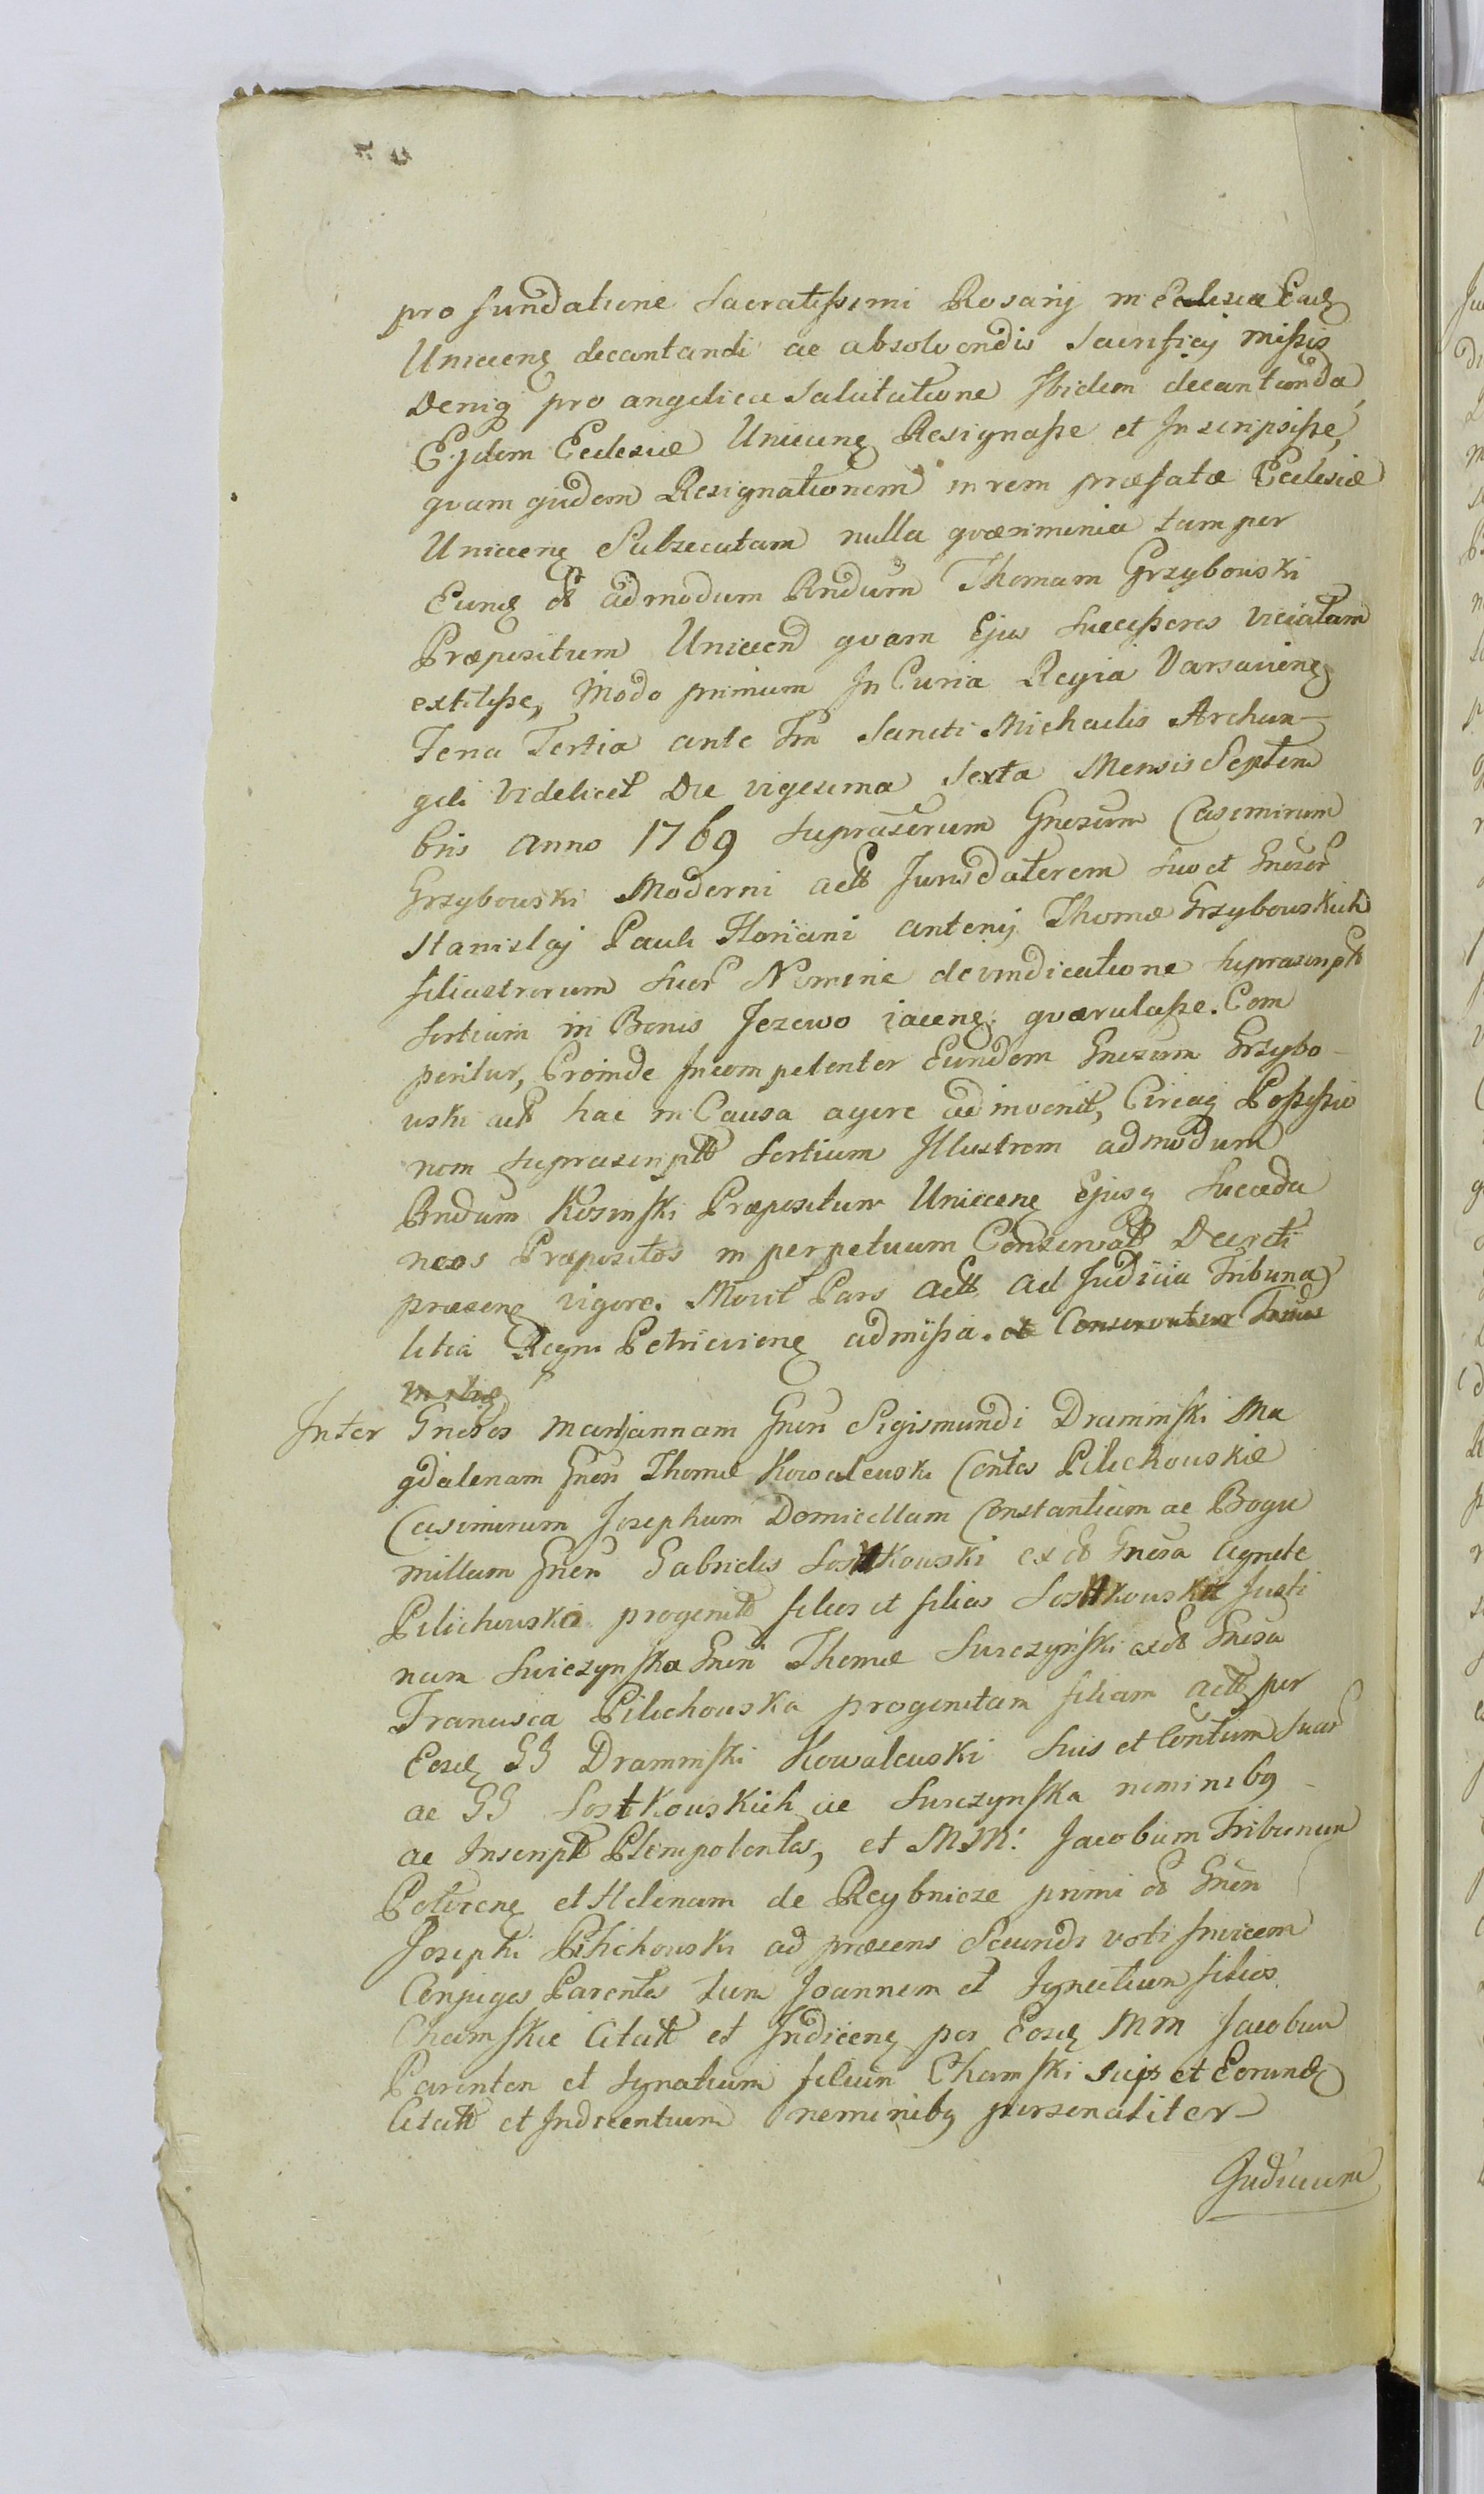 pro fundatione Sacratissimi Rosarij in Ecclesia Ead
Uniecens decantandi ac absolvendis Sacrificij missis
Deniq pro angelica Salutatione Ibidem decantanda,
Ejdem Ecclesiæ Uniecens Resignasse et Inscripsisse,
qvam qvidem Resignationem in rem præfatæ Ecclesiæ
Uniecens Subsecutam nulla qværimonia tam per
Eund olt admodum Rndum Thomam Grzybowski
Præpositum Uniecen qvam Ejus Successores viciatam
extitisse, Modo primum In Curia Regia Varsaviens
Feria Tertia ante Fm Sancti Michaelis Archan-
geli Videlicet Die vigesima Sexta Mensis Septem
bris Anno 1769 Suprascrum Gnesum Casimirum
Grzybowski Moderni actt Jurisdatorem Suo et Gnesor
Stanislaj Pauli Floriani Antonij Thomæ Grzybowskich
filiastrorum Suor Nomine de vindicatione Suprascriptt
Sortium in Bonis Jezewo jacens qværulasse. Com
peritur, Proinde Incompetenter Eundem Gnesum Grzybo-
wski actt hac in Causa agere adinvenit, Circaq Possessio
nem Suprascriptt Sortium Illustrem admodum
Rndum Kosinski Præpositum Uniecens Ejusq Succeda
neos Præpositos in perpetuum Conservatt Decreti
præsens vigore. Movit Pars actt ad Judicia Tribuna
litia Regni Petricoviens admissa. et Conservatur Trius
in clus
Inter Gnesos Mariannam Gnesi Sigismundi Draminski Ma
gdalenam Gnesi Thomæ Kowalewski Contes Pilichowskie
Casimirum Josephum Domicellam Constantiam ac Bogu
millam Gnesi Gabrielis Sostkowski ex olt Gnesa Agnete
Pilichowska progenitt filios et filias Sostkowskie Justi
nam Surczynska Gnesi Thomæ Surczynski ex olt Gnesa
Francisca Pilichowska progenitam filiam actt per
Eosd GG Draminski Kowalewski Suis et Contum Suar
ac GG Sostkowskich ac Surczynska nominibq
ac Inscriptt Plenipotentes, et MM: Jacobum Tribunum
et Helenam de Reybnicze primi olt Gnesi
Josephi Pilichowski ad præsens Secundi voti Invicem
Conjuges Parentes tum Joannem et Ignatium filios
Chamskie Citatt et Indicens per Eosd MM Jacobum
Parentem et Ignatium filium Chamski suis et Eorund
Citatt et Indicentium nominibq personaliter
Judicium